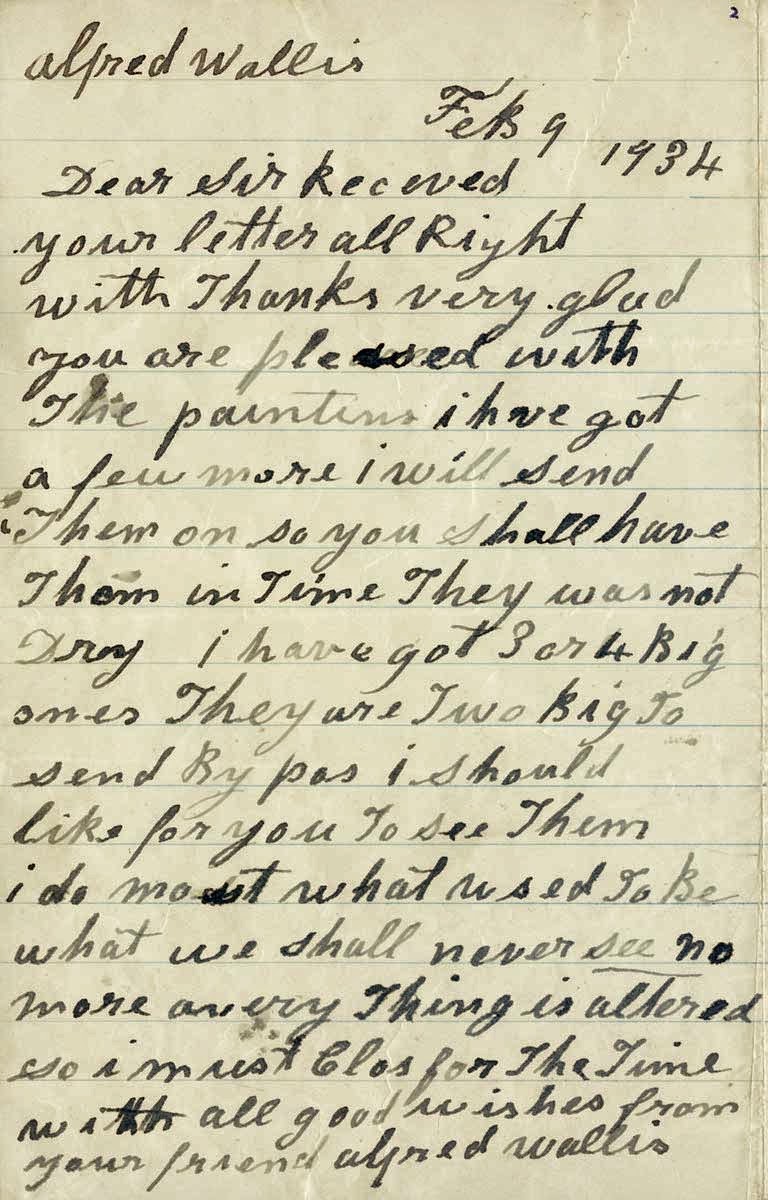 2
alfred Wallis
Feb 9 1934
Dear Sir Receved
your letter all Right
with Thanks very glad
you are pleased with
The paintins i hve got
a few more i will send
Them on so you shall have
Them in Time They was not
Dry i have got 3 or 4 Big
ones They are Two Big To
send By pos i should
like for you To see Them
i do moust what used To Be
what we shall never see no
more avery Thing is altered
so i must Clos for The Time
with all good wishes from
your friend alfred wallis